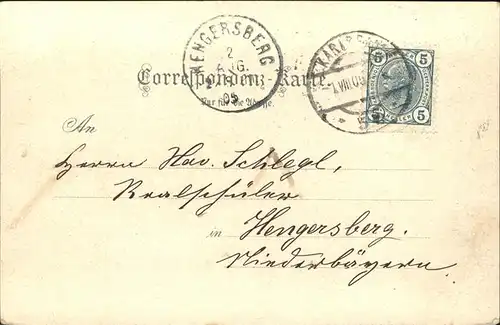 HENGERSBERG
2
AUG.
05
5 5
5 5
Correspondenz-Karte.
Nur für die Adresse.
An
Herrn Xav. Schlegl,
Realschüler
in Hengersberg.
Niederbayern.